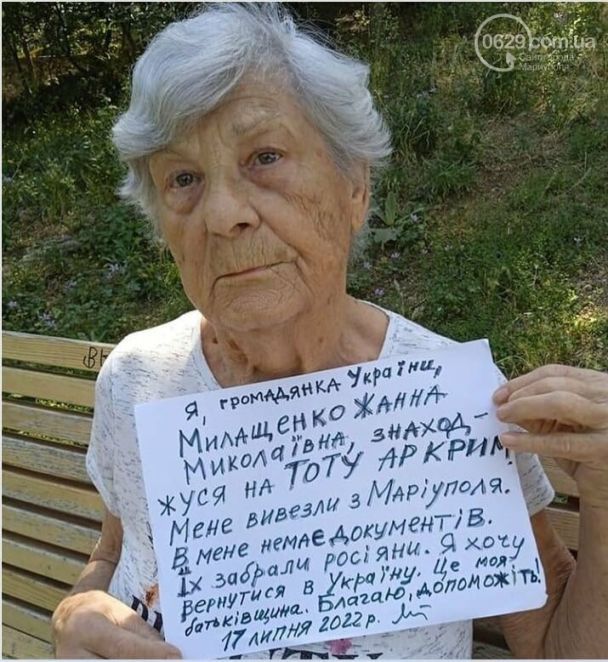 0629.com.ua
Сайт города
Мариуполя
вн
Я, громадянка України,
Милащенко Жанна
Миколаївна, знаход-
жуся на ТОТУ АР КРИМ!
Мене вивезли з Маріуполя.
В мене немає документів.
Їх забрали росіяни. Я хочу
вернутися в Україну. Це моя
батьківщина. Благаю, допоможіть!
17 липня 2022 р.